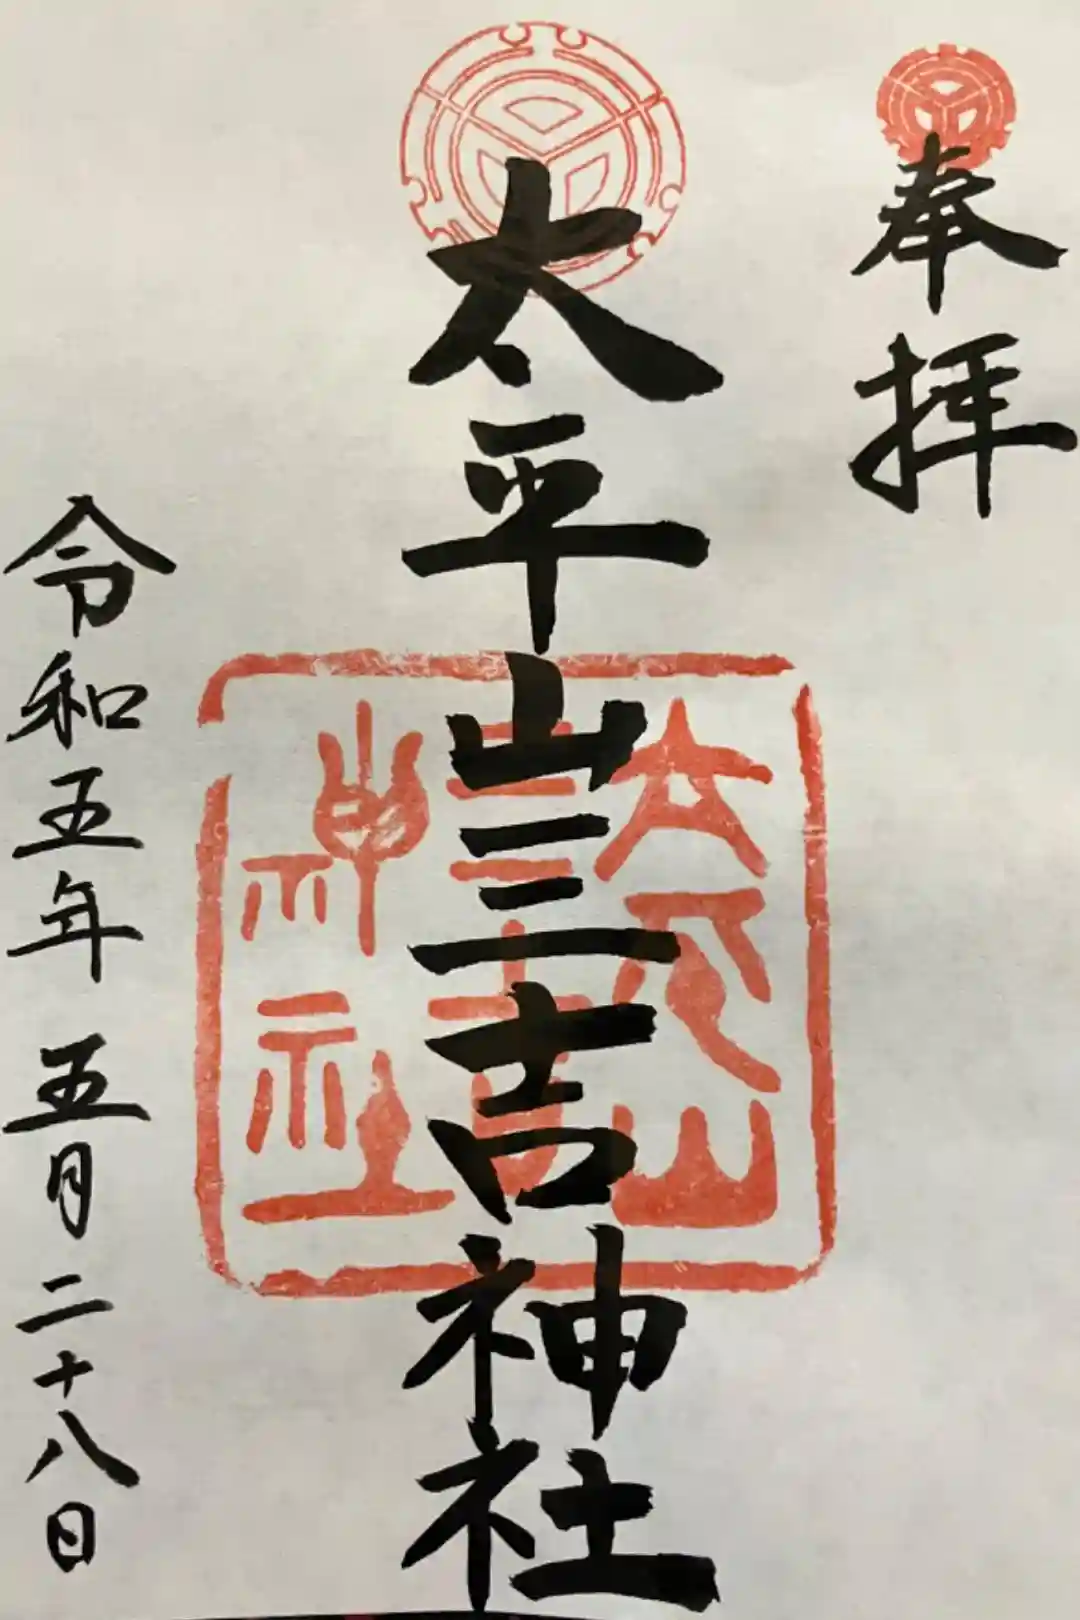 奉拝
太平山三吉神社
太平山
三吉
神社
令和五年五月二十八日